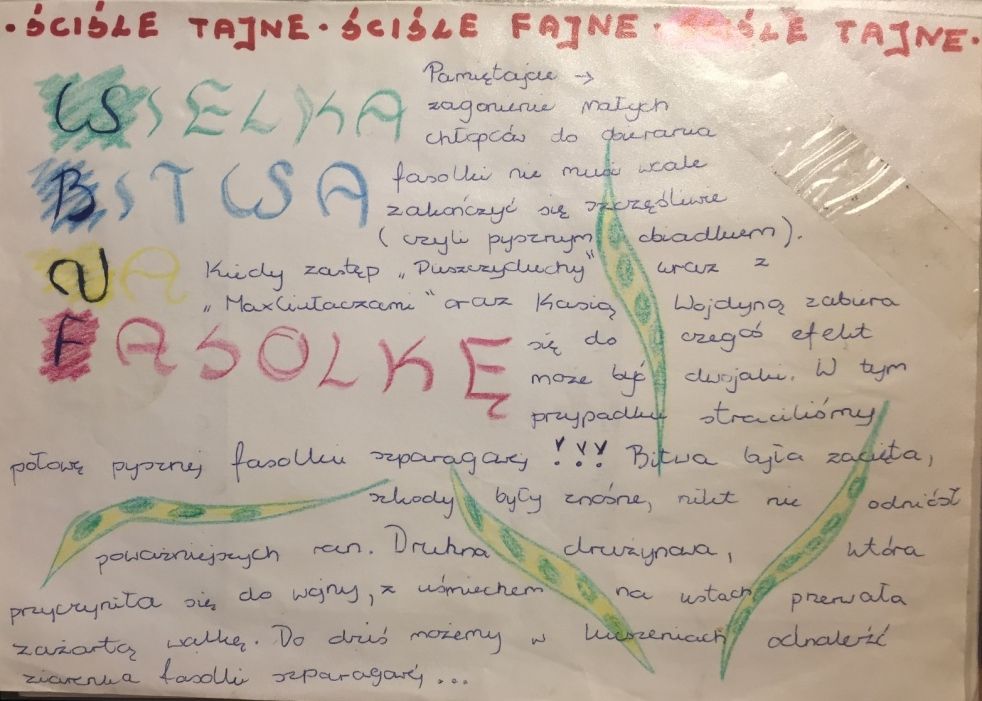 • ŚCIŚLE TAJNE • ŚCIŚLE FAJNE • ŚCIŚLE TAJNE •
WIELKA
BITWA
NA
FASOLKĘ
Pamiętajcie →
zagonienie małych
chłopców do obierania
fasolki nie musi wcale
zakończyć się szczęśliwie
(czyli pysznym obiadkiem).
Kiedy zastęp „Puszczyduchy" wraz z
„MaxCiułaczami" oraz Kasią Wojdyną zabiera
się do czegoś efekt
może być dwojaki. W tym
przypadku straciliśmy
połowę pysznej fasolki szparagawej !!! Bitwa była zacięta,
szkody były znośne, nikt nie odniósł
poważniejszych ran. Druhna drużynowa, która
przyczyniła się do wojny, z uśmiechem na ustach przerwała
zażartą walkę. Do dziś możemy w kieszeniach odnaleźć
ziarenka fasolki szparagawej ...